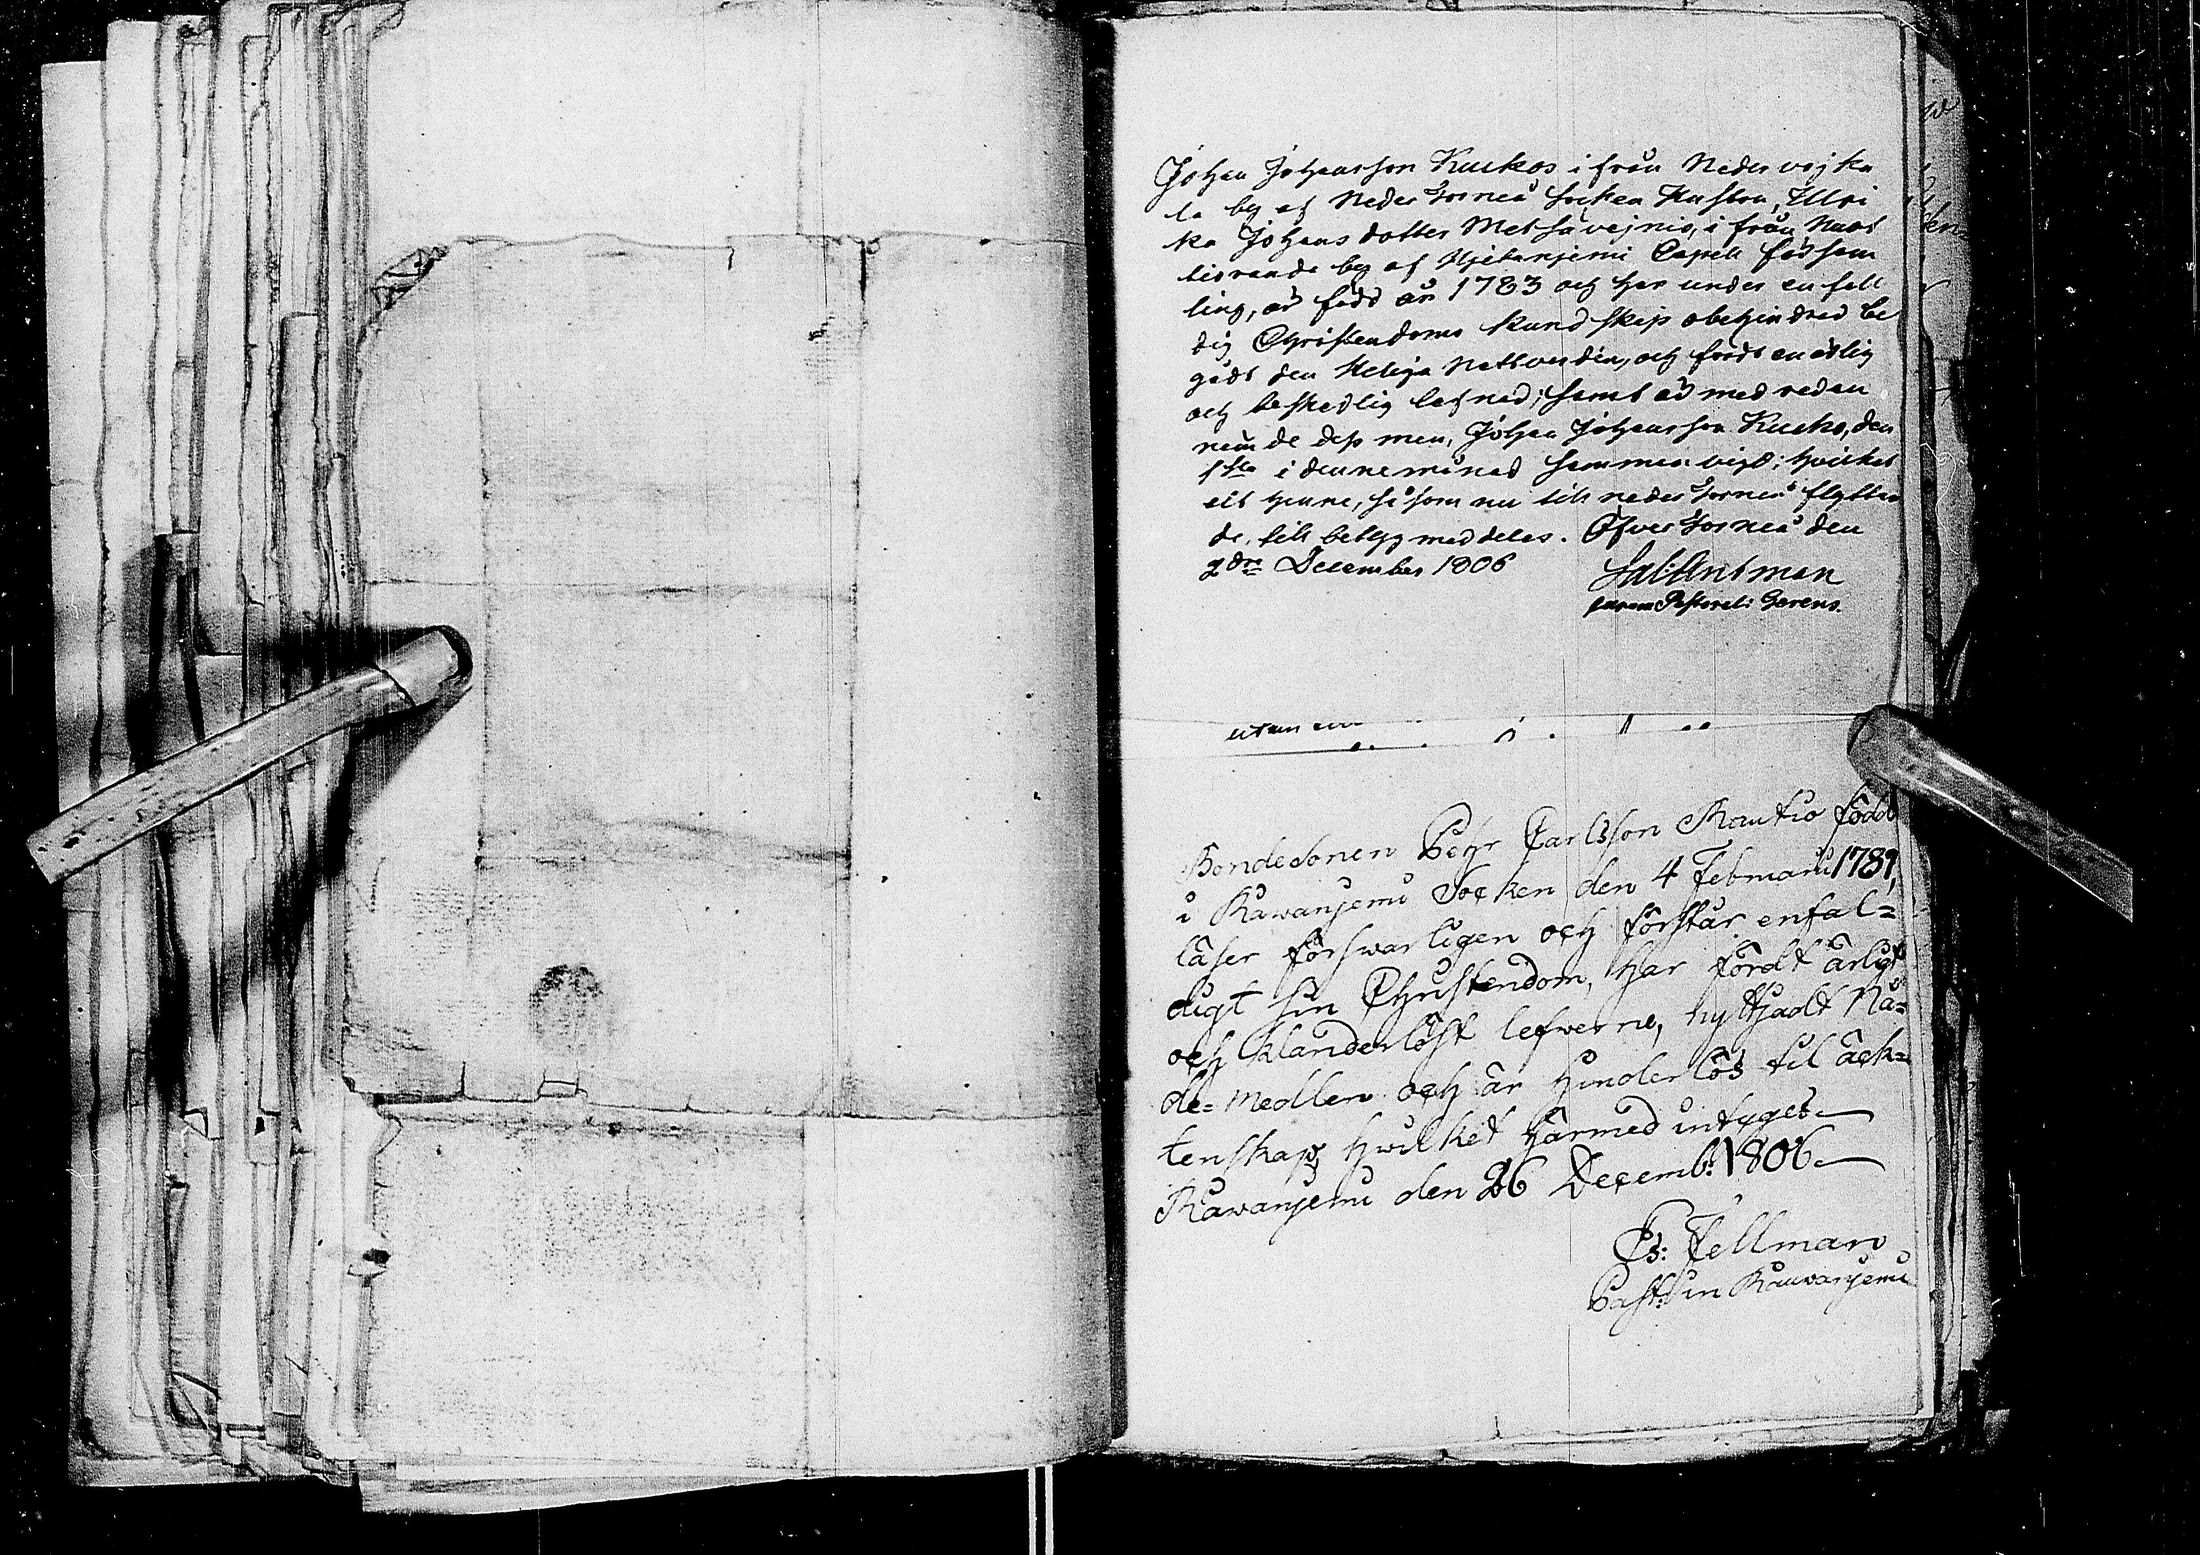 Johan Johansson Kuckos ifrån Neder vojka
la by af Neder Torneå Socken Hustru, Ulri
ka Johans dotter Metsävejnio, i från Nuot
tisranda by af Hjetanjemi Capell försam
ling, är född år 1783 och har under enfall
dig Christendoms kundskap obehindrad be
gådt den Heliga Nattvarden, och fördt en ärlig
och beskedlig lefnad; samt är med redan
nämde dess man, Johan Johansson Kucko, den
1sta i denne månad samman vigd; hvilket
alt henne, såsom nu till neder Torneå flyttan
de, till betyg meddelas. Öfver Torneå den
2dra December 1806
Sal: Antman
curam Pastoral: Gerens.
utan
Bondesonen Pehr Carlsson Rautio född
i Rawanjemi Socken den 4 Februarii 1789,
läser försvarligen och förstår enfal=
digt sin Christendom, har fördt ärligt
och klanderlöst lefwerne, nyttjadt Nå=
de-medlen och är hinderlös til äck=
tenskap, hwilket härmed intyges.
Rawanjemi den 26 Decemb: 1806.
Es: Fellman
Past: in Rauvanjemi